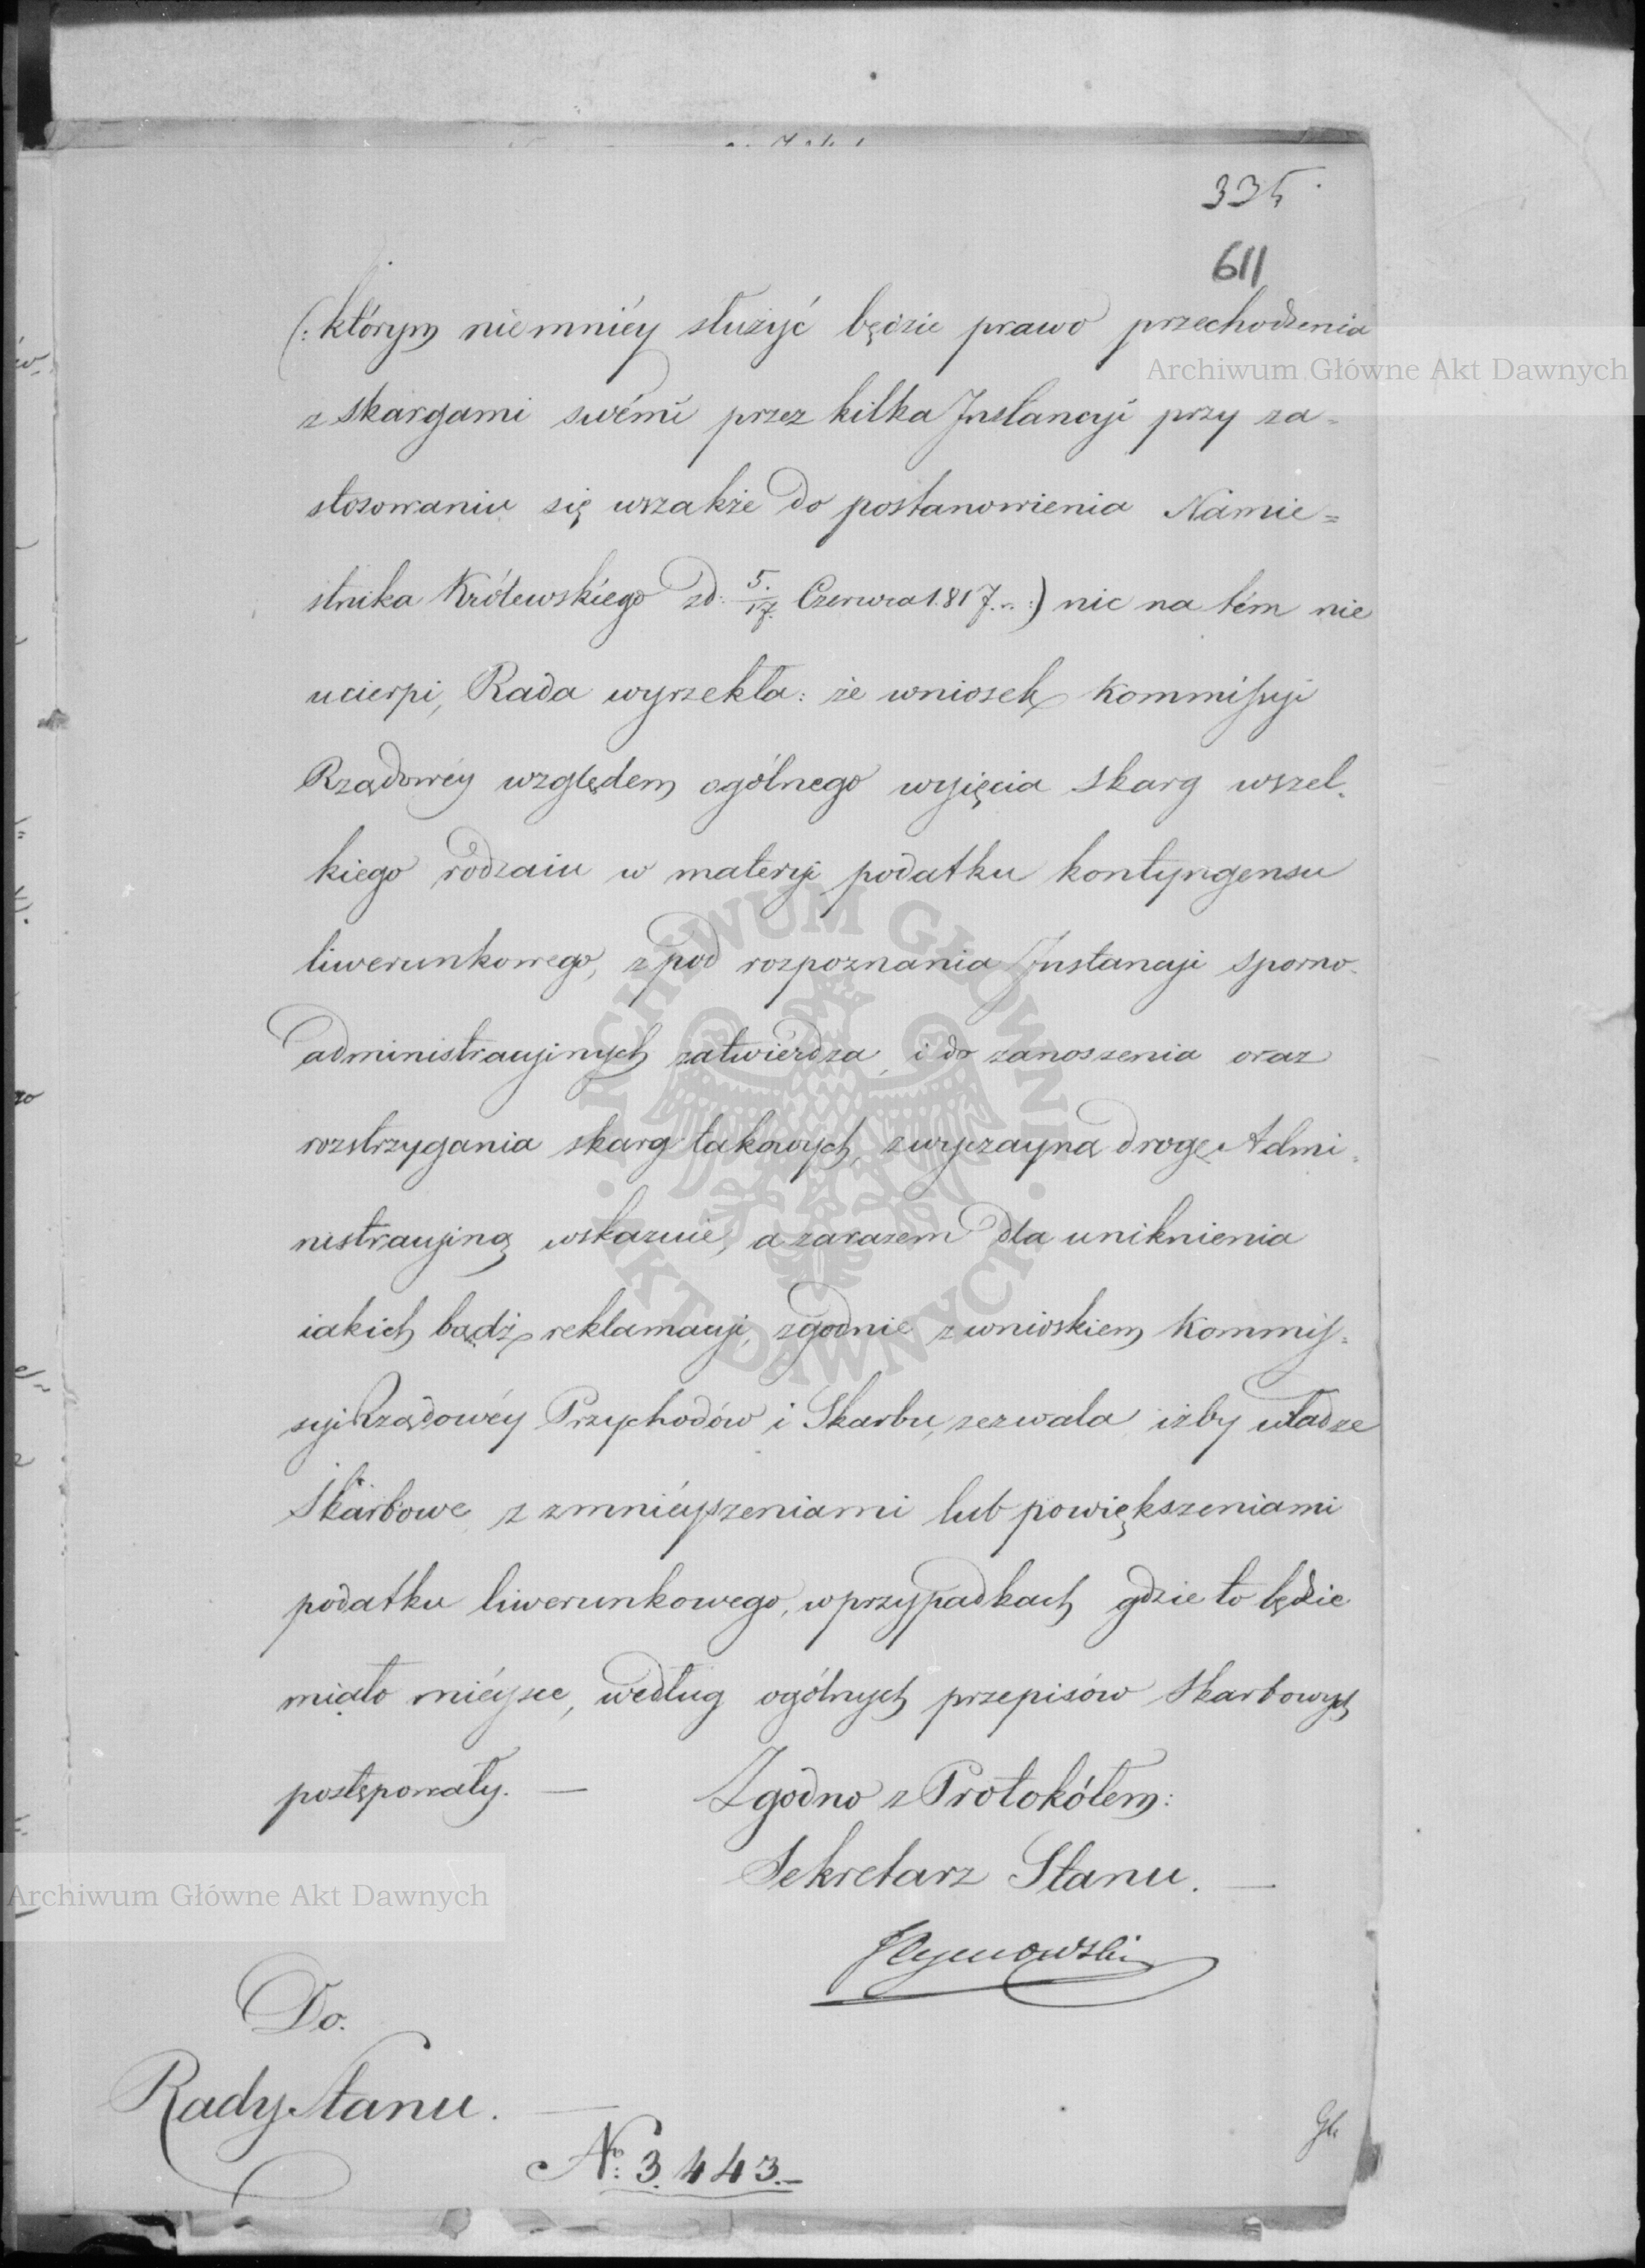 335.
611
(: którym niemniéy służyć będzie prawo przechodzenia
z skargami swémi przez kilka Instancyi przy za-
stosowaniu się wszakże do postanowienia Namie=
stnika Królewskiego zd: 5./17. Czerwca 1817. r. :) nic na tém nie
ucierpi, Rada wyrzekła: że wniosek Kommissyi
Rządowéy względem ogólnego wyięcia skarg wszel-
kiego rodzaiu w materyi podatku kontyngensu
liwerunkowego, z pod rozpoznania Instancyi sporno-
administracyinych zatwierdza, i do zanoszenia oraz
rozstrzygania skarg takowych, zwyczayną drogę Admi-
nistracyiną wskazuie, a zarazem dla uniknienia
iakich bądź reklamacyi, zgodnie z wnioskiem Kommis-
syi Rządowéy Przychodów i Skarbu, zezwala, iżby władze
Skarbowe z zmniéyszeniami lub powiększeniami
podatku liwerunkowego, w przypadkach gdzie to będzie
miało miéysce, według ogólnych przepisów Skarbowych
postępowały. —
Zgodno z Protokółem:
Sekretarz Stanu. —
Do.
Rady Stanu. —
No: 3.443.—
Archiwum Główne Akt Dawnych
Archiwum Główne Akt Dawnych
ARCHIWUM GŁÓWNE
AKT DAWNYCH